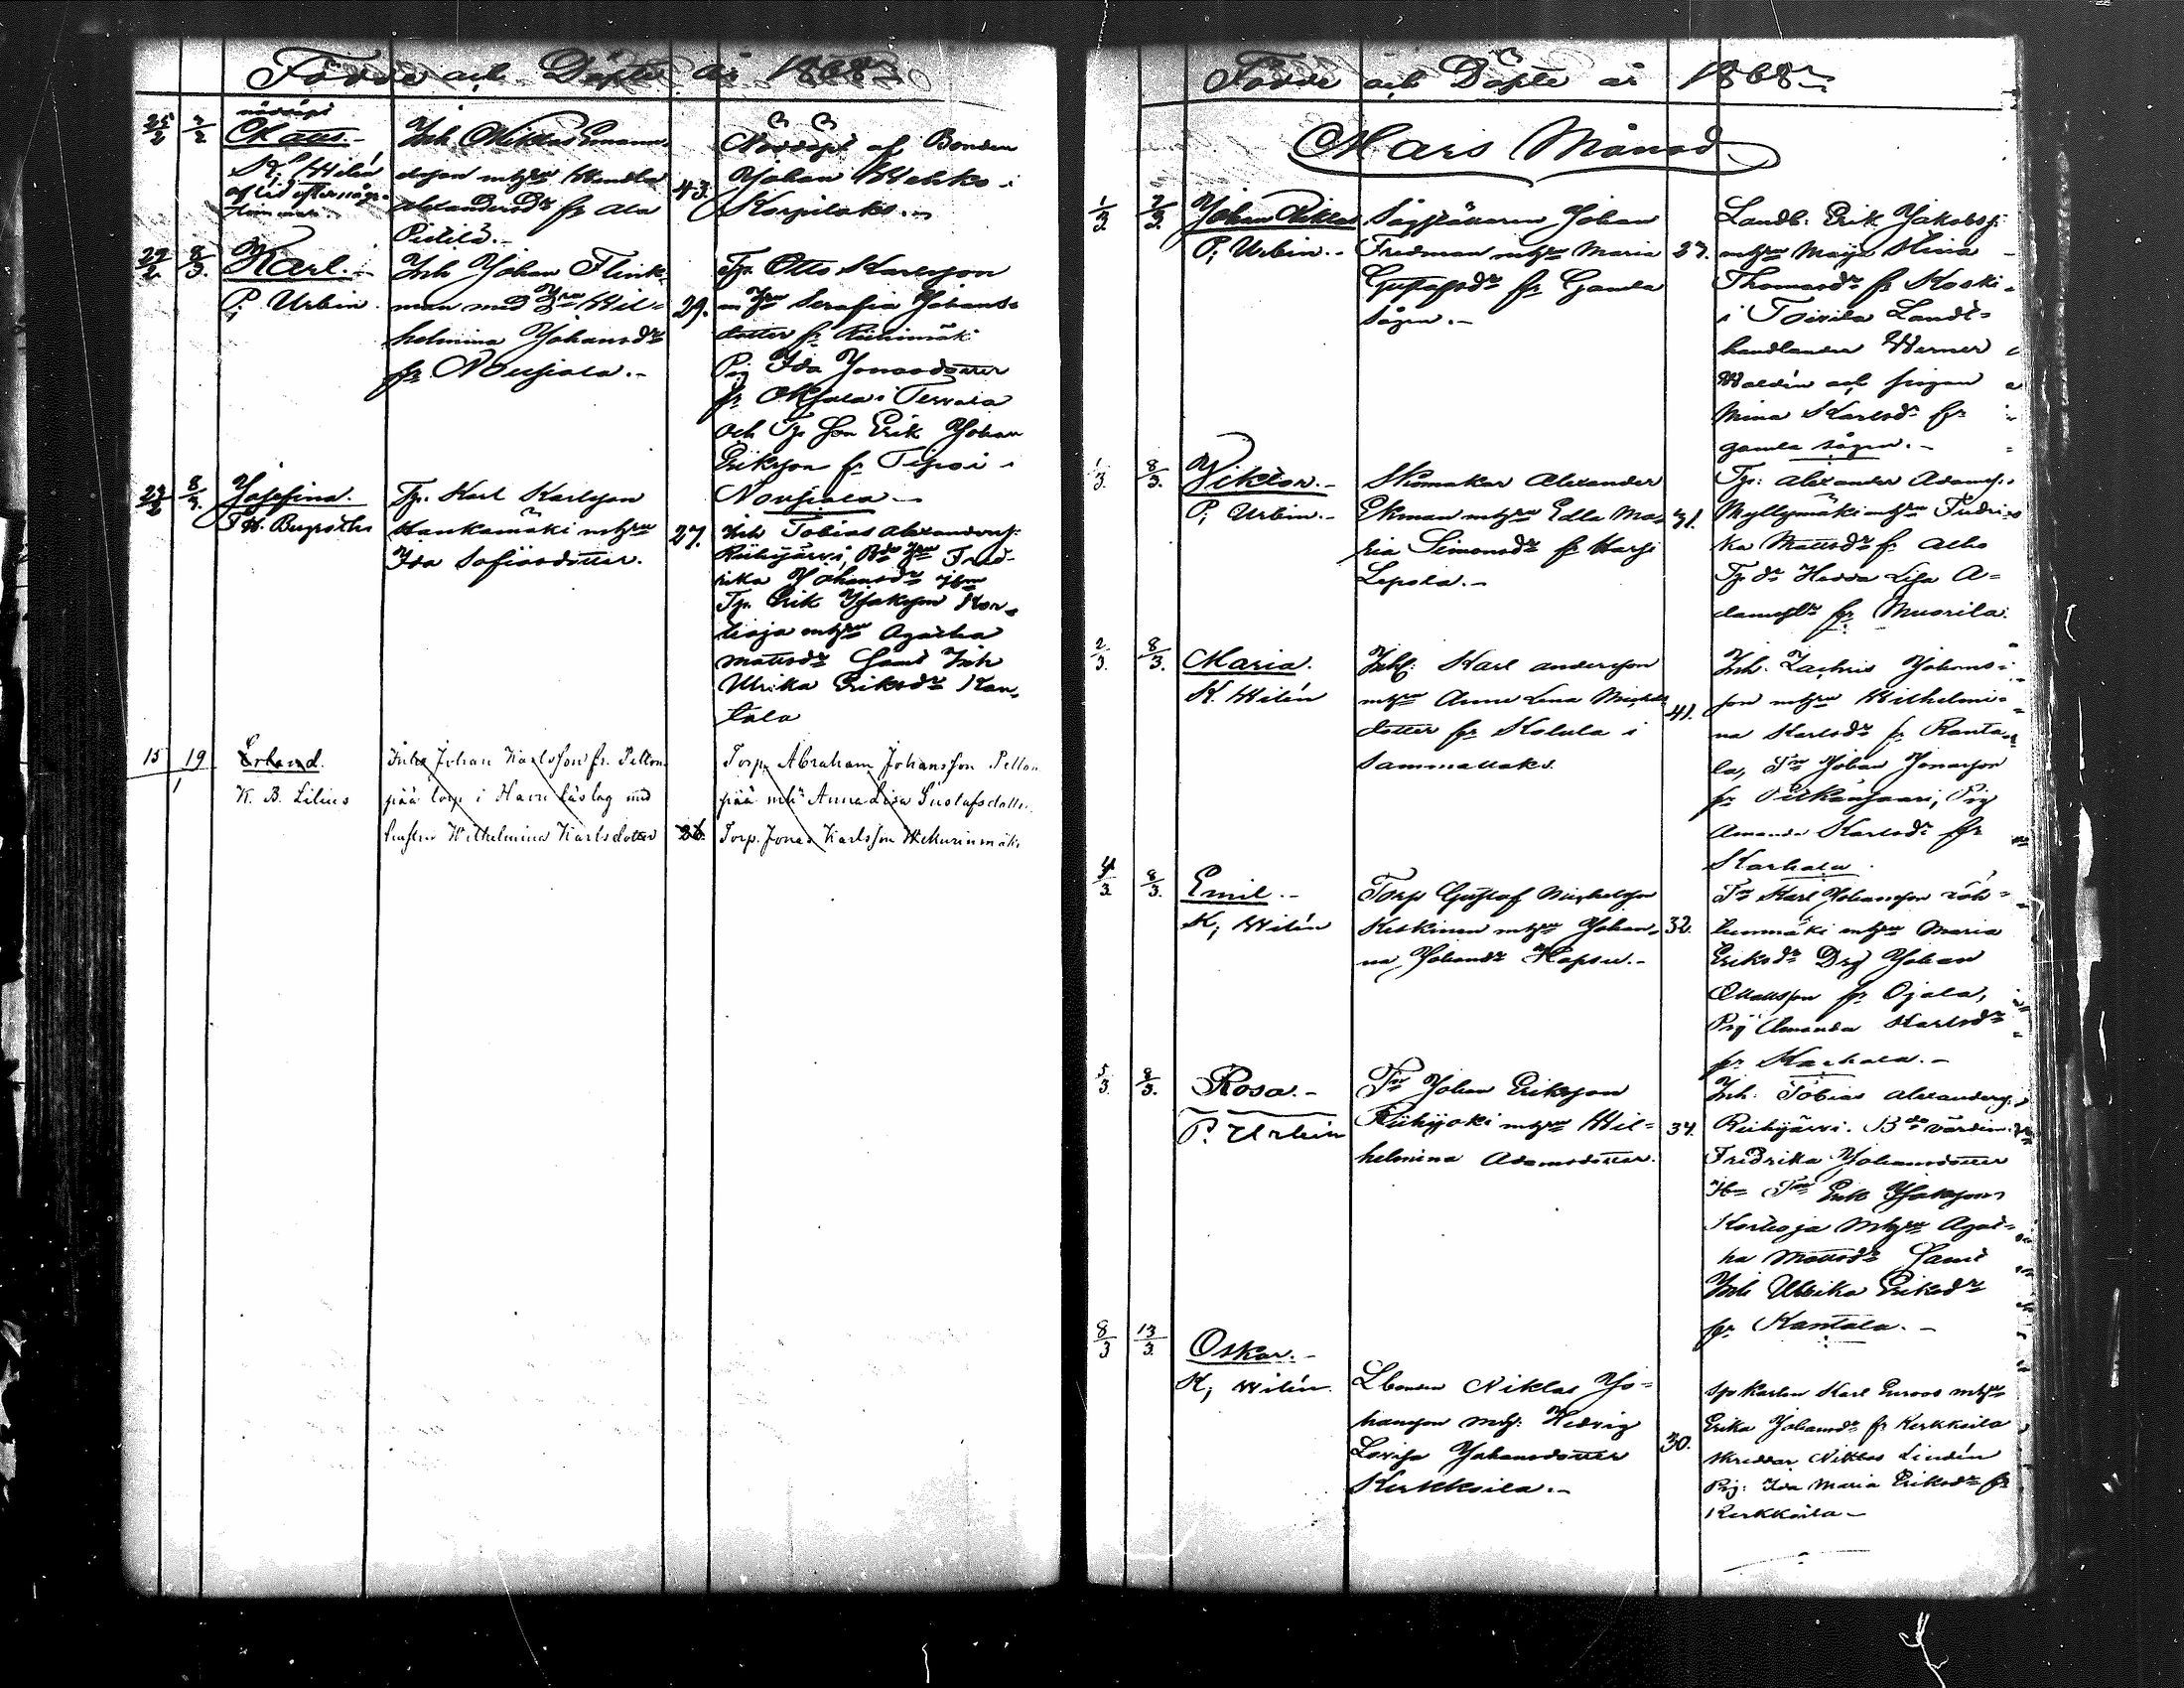 Födde och Döpte år 1868
25/2
nöddöpt
Matts.
K. Wilén
Inh Niklas Emanu-
elsson mhru Wendla
Alexandersdr fr Ala
Pietilä.
43.
Nöddöpt af Bonden
Johan Wehko i
Korpilaks.
29/2 8/3.
Karl.
P; Urbin.
Inh Johan Flink-
man med Hru Wil=
helmina Johansdr
fr. Nousjala.
29.
Tp. Otto Karlsson
m Hru Serafia Johans=
dotter fr Riihimäki
Pig Ida Jonasdotter
fr
och Tp son Erik Johan
Eriksson fr
Nousjala
27/2 8/3.
Josefina.
Tp. Karl Karlsson
Hankamäki mhru
Ida Sofiasdotter.
27.
Inh Tobias Alexanderss:
Riihijärvi, Bde Hru Fred-
rika Johansdr
Tp. Erik Isaksson Kor-
tioja mhru Agatha
Mattsdr Samt Inh
Ulrika Eriksdr Kan-
tala
15 19
1
Erland.
K. B. Lilius
Inhs Johan Karlsson fr. Pelton-
pää torp i med
hustru Wilhelmina Karlsdotter
26.
Torp. Abraham Johansson Pelton
pää mh Anna Lisa Gustafsdotter
Torp. Jonas Karlsson
Födde och Döpte år 1868
Mars Månad
1/3 7/3.
Johan Niklas
P; Urbin.
Sågställaren Johan
Fredman mhru Maria
Gustafsdr fr Gamla
sågen.
27.
Landb. Erik Jakobss:
mhru Maja Stina
Thomasdr fr Koski
i Toivila Landt-
handlanden Werner
Waldén och pigan
Mina Karlsdr fr
gamla sågen.
1/3. 8/3.
Viktor.
P; Urbin.
Skomakar Alexander
Ekman mhru Edla Ma-
ria Simonsdr fr Harju
Lepola.
31.
Tp: Alexander Adamss:
Myllymäki mhru Fredri-
ka Mattsdr fr Alho
Tp dr Hedda Lisa A=
damsdr fr Muorila.
2/3. 8/3.
Maria.
K. Wilén
Inh: Karl Andersson
mhru Anna Lena Michels
dotter fr Kolula i
Sammallaks.
41.
Inh. Zachris Johans-
son mhru Wilhelmi-
na Karlsdr fr Ranta-
la, Tre Johan Jonasson
fr Pitkänsaari, Pig
Amanda Karlsdr fr
Karhala.
4/3 8/3.
Emil.
K; Wilén
Torp Gustaf Michelsson
Keskinen mhru Johan-
na Johansdr Hapsu.
32.
Tre Karl Johansson
mhru Maria
Eriksdr Drg Johan
Mattsson fr Ojala,
Pig Amanda Karlsdr
fr Karhala.
5/3. 8/3.
Rosa.
P. Urbin
Tre Johan Eriksson
Riihijoki mhru Wil=
helmina Adamsdotter.
34.
Inh. Tobias Alexanderss:
Riihijärvi. Bde värdin:
Fredrika Johansdotter
Tre Erik Isaksson
Kortioja mhru Agat=
ha Mattsdr Samt
Inh Ulrika Eriksdr
fr Kantala.
8/3 13/3
Oskar.
K; Wilén.
Lbonden Niklas Jo=
hansson mh: Hedvig
Lovisa Johansdotter
Kerkkoila.
30.
Karl Enroos mhru
Erika Johansdr fr Kerkkoila
skreddar Niklas Lindén
Pig: Ida Maria Eriksdr fr
Kerkkoila